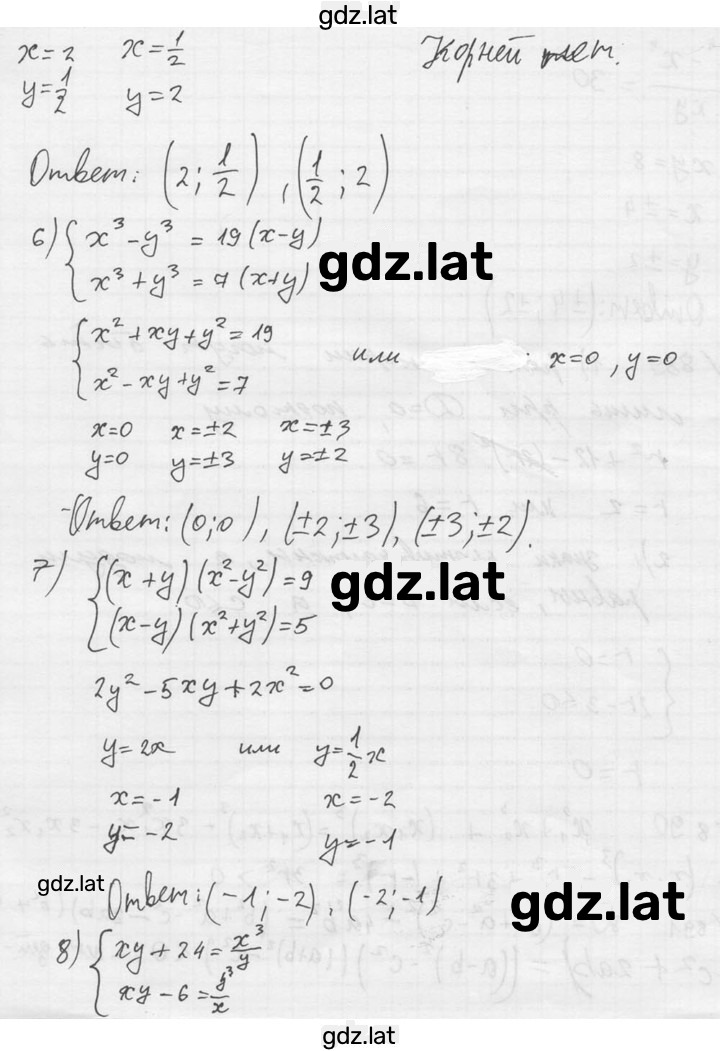 gdz.lat
x=2 x=1/2 Корней нет.
y=1/2 y=2
Ответ: (2; 1/2), (1/2; 2)
6) { x³-y³ = 19(x-y)
x³+y³ = 7(x+y)
gdz.lat
{ x²+xy+y²=19
x²-xy+y²=7
или x=0, y=0
x=0 x=±2 x=±3
y=0 y=±3 y=±2
Ответ: (0;0), (±2;±3), (±3;±2).
7) { (x+y)(x²-y²)=9
(x-y)(x²+y²)=5
gdz.lat
2y²-5xy+2x²=0
y=2x или y=1/2 x
x=-1 x=-2
y=-2 y=-1
gdz.lat
Ответ: (-1;-2), (-2;-1)
gdz.lat
8) { xy+24=x³/y
xy-6=y³/x
gdz.lat